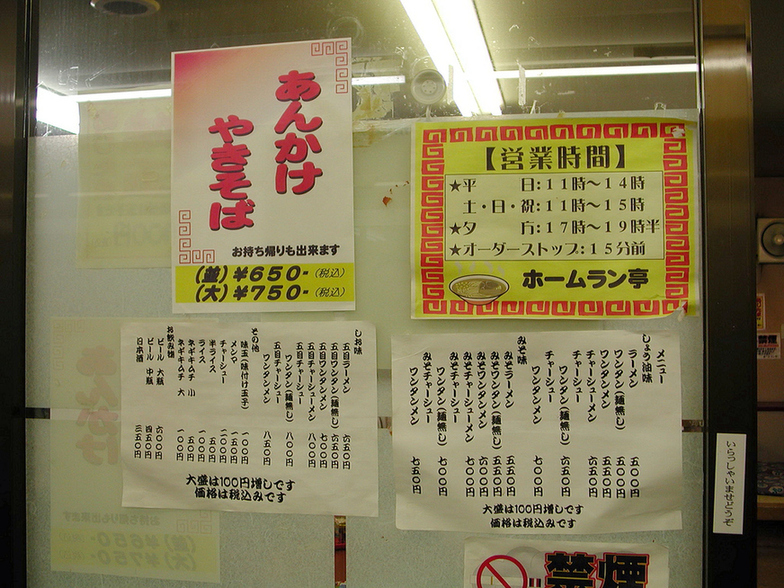 あんかけ
やきそば
お持ち帰りも出来ます
(並)￥650-(税込)
(大)￥750-(税込)
【営業時間】
★平　日:11時～14時
土・日・祝:11時～15時
★夕　方:17時～19時半
★オーダーストップ:15分前
ホームラン亭
メニュー
しょう油味
ラーメン 五〇〇円
ワンタン(麺無し) 五〇〇円
ワンタンメン 五五〇円
チャーシューメン 六五〇円
チャーシュー
ワンタン(麺無し) 六五〇円
チャーシュー
ワンタンメン 七〇〇円
みそ味
みそラーメン 五五〇円
みそワンタン(麺無し) 五五〇円
みそワンタンメン 六〇〇円
みそチャーシューメン 七〇〇円
みそチャーシュー
ワンタン(麺無し) 七〇〇円
みそチャーシュー
ワンタンメン 七五〇円
大盛は100円増しです
価格は税込みです
しお味
五目ラーメン 六五〇円
五目ワンタン(麺無し) 六五〇円
五目ワンタンメン 七〇〇円
五目チャーシューメン 八〇〇円
五目チャーシュー
ワンタン(麺無し) 八〇〇円
五目チャーシュー
ワンタンメン 八五〇円
その他
味玉(味付け玉子) 一〇〇円
メンマ 一五〇円
チャーシュー 二〇〇円
半ライス 一〇〇円
ライス 一五〇円
ネギキムチ 小
ネギキムチ 大
お飲み物
ビール 大瓶 六〇〇円
ビール 中瓶 四五〇円
日本酒 三五〇円
大盛は100円増しです
価格は税込みです
いらっしゃいませどうぞ
禁煙